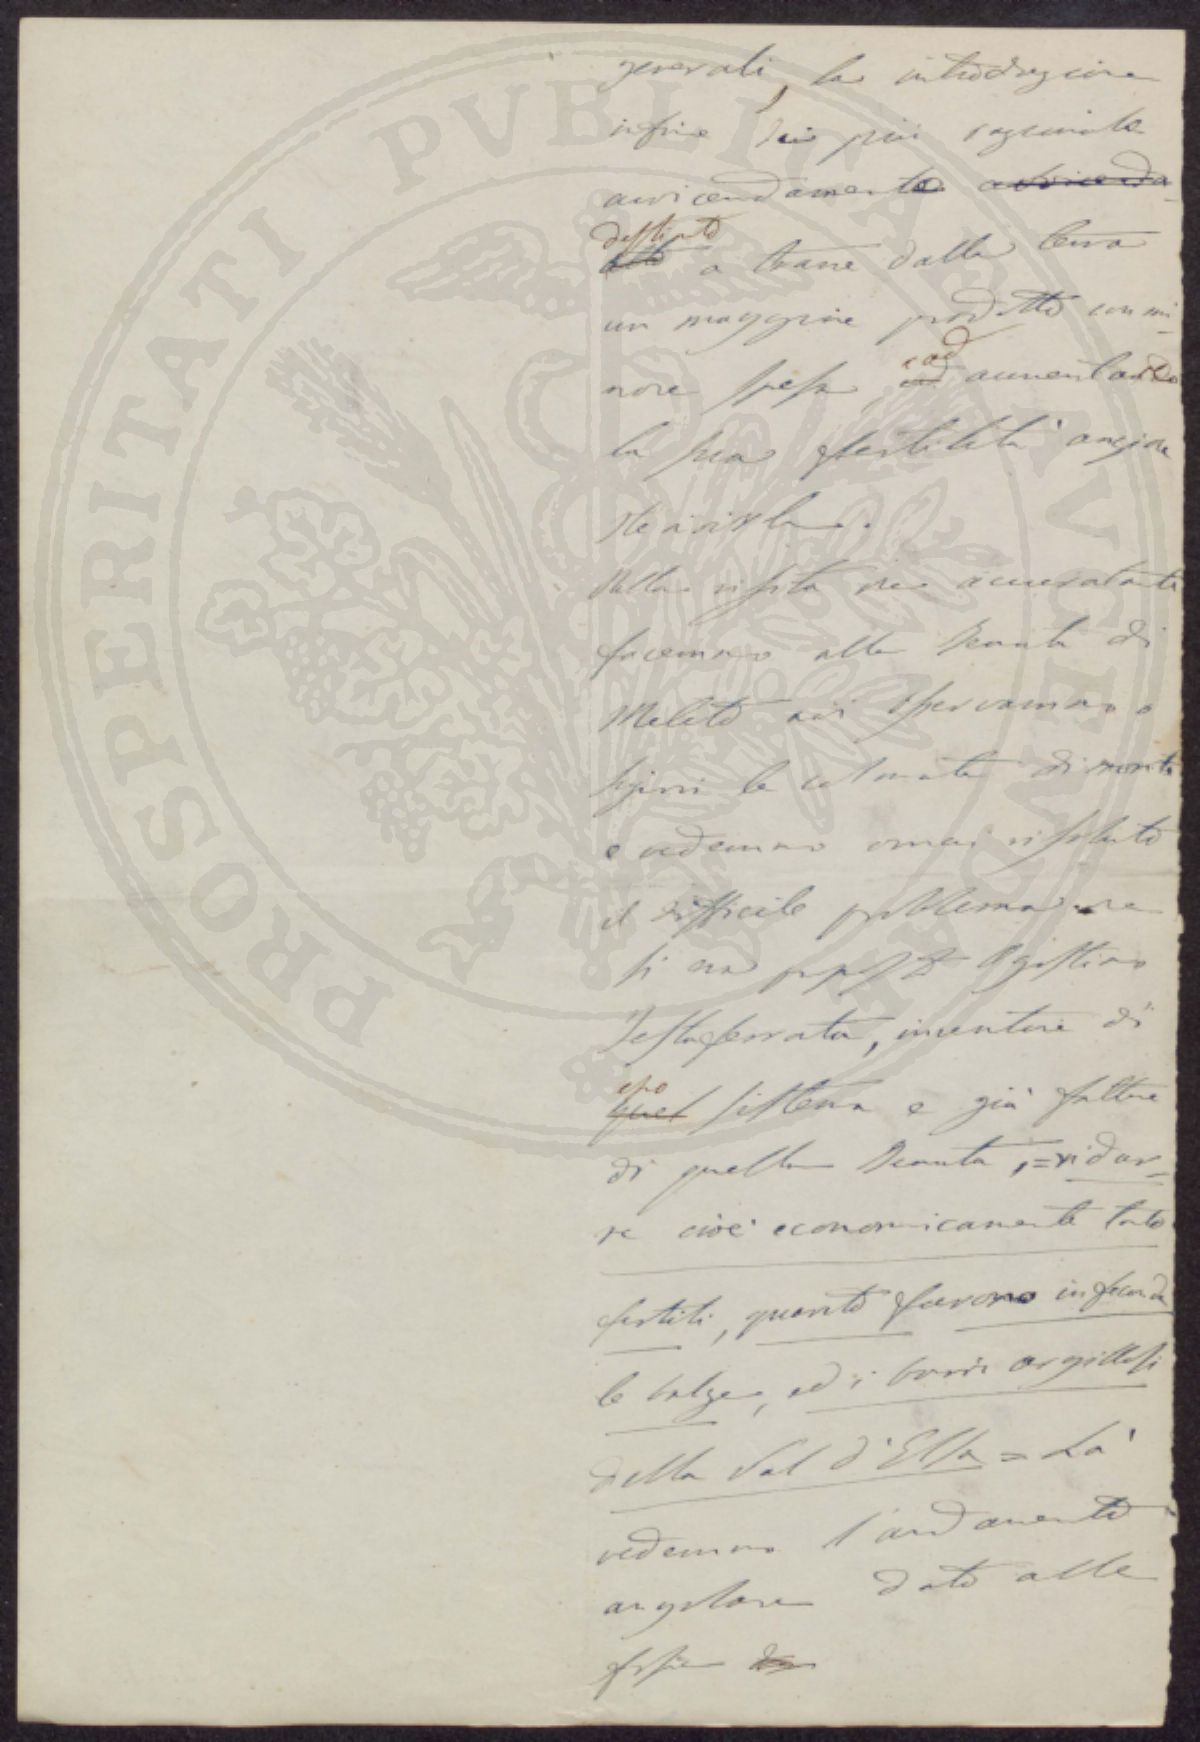 generali, la introduzione
infine di più razionale
avvicendamento avvicenda-
destinato
atto a trarre dalla terra
un maggiore prodotto con mi-
nore spesa, e ad aumentare
la sua fertilità anziché
sterirla.
Nella visita che accuratante
facemmo alla Tenuta di
Meleto ivi osservammo
le colmate di monte
e vedemmo omai risoluto
il difficile problema che
si era proposto Agostino
Testaferrata, inventore di
esso
quel sistema e già fattore
di quella Tenuta, = ridur-
re cioè economicamente tanto
fertili, quanto furono infeconde
le balze, ed i borri argillosi
della Val d'Elsa = Là
vedemmo l'andamento
angolare dato alle
fosse
PROSPERITATI PVBLICAE AVGENDAE